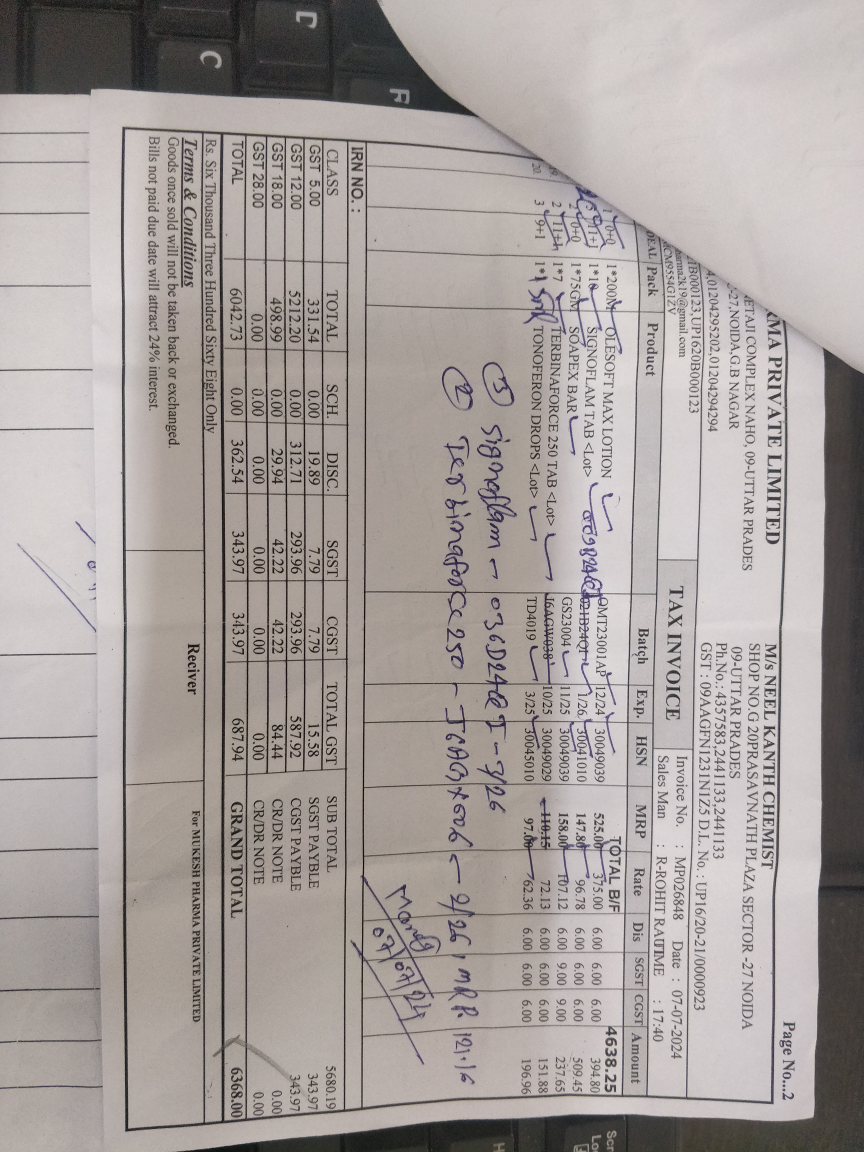 Page No...2
RMA PRIVATE LIMITED
ETAJI COMPLEX NAHO, 09-UTTAR PRADES
-27,NOIDA,G.B NAGAR
4,01204295202,01204294294
1B000123,UP1620B000123
harma2k19@gmail.com
CM9554G1ZV
M/s NEEL KANTH CHEMIST
SHOP NO.G 20PRASAVNATH PLAZA SECTOR -27 NOIDA
09-UTTAR PRADES
Ph.No.: 4357583,2441133,2441133
GST : 09AAGFN1231N1Z5 D.L. No. : UP16/20-21/0000923
TAX INVOICE
Invoice No. : MP026848 Date : 07-07-2024
Sales Man : R-ROHIT RAUTIME : 17:40
DEAL Pack Product Batch Exp. HSN MRP Rate Dis SGST CGST Amount
TOTAL B/F 4638.25
1 0+0 1*200M OLESOFT MAX LOTION OMT23001AP 12/24 30049039 525.00 375.00 6.00 6.00 6.00 394.80
11+1 1*10 SIGNOFLAM TAB <Lot> 009B24QI 021B24Q1 1/26 30041010 147.80 96.78 6.00 6.00 6.00 509.45
2 0+0 1*75GM SOAPEX BAR GS23004 11/25 30049039 158.00 107.12 6.00 9.00 9.00 237.65
2 11+1 1*7 TERBINAFORCE 250 TAB <Lot> J6AGW038 10/25 30049029 110.15 72.13 6.00 6.00 6.00 151.88
20. 3 9+1 1*15ML TONOFERON DROPS <Lot> TD4019 3/25 30045010 97.00 62.36 6.00 6.00 6.00 196.96
③ Signoflam - 036D24QI - 3/26
② Terbinaforce 250 - - 2/26, MRP. 121.16
07/07/24
IRN NO. :
CLASS TOTAL SCH. DISC. SGST CGST TOTAL GST
GST 5.00 331.54 0.00 19.89 7.79 7.79 15.58
GST 12.00 5212.20 0.00 312.71 293.96 293.96 587.92
GST 18.00 498.99 0.00 29.94 42.22 42.22 84.44
GST 28.00 0.00 0.00 0.00 0.00 0.00 0.00
TOTAL 6042.73 0.00 362.54 343.97 343.97 687.94
SUB TOTAL 5680.19
SGST PAYBLE 343.97
CGST PAYBLE 343.97
CR/DR NOTE 0.00
CR/DR NOTE 0.00
GRAND TOTAL 6368.00
Rs. Six Thousand Three Hundred Sixty Eight Only
Terms & Conditions
Goods once sold will not be taken back or exchanged.
Bills not paid due date will attract 24% interest.
Reciver
For MUKESH PHARMA PRIVATE LIMITED